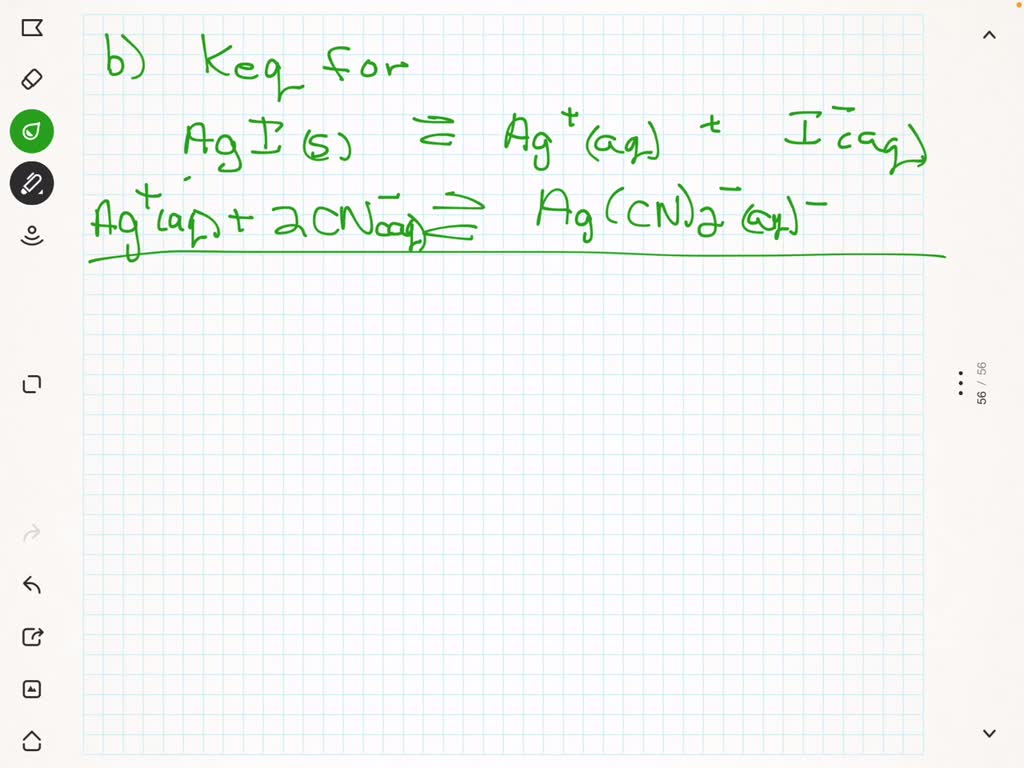 b) Keq for
AgI(s) ⇌ Ag⁺(aq) + I⁻(aq)
Ag⁺(aq) + 2CN⁻(aq) ⇌ Ag(CN)2⁻(aq)⁻
56 / 56